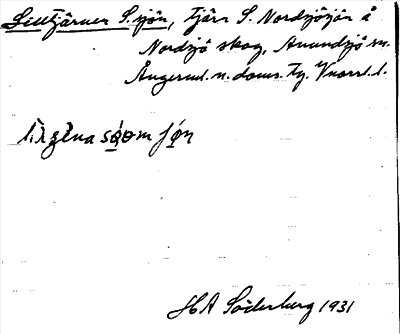 Lilltjärnen S. sjön, tjärn S. Nordsjösjön å
Nordsjö skog, Anundsjö sn.
Ångerml. n. doms. Fg. Vnorrl. l.
sǫ́ǫm jǫ́n
HA Söderberg 1931